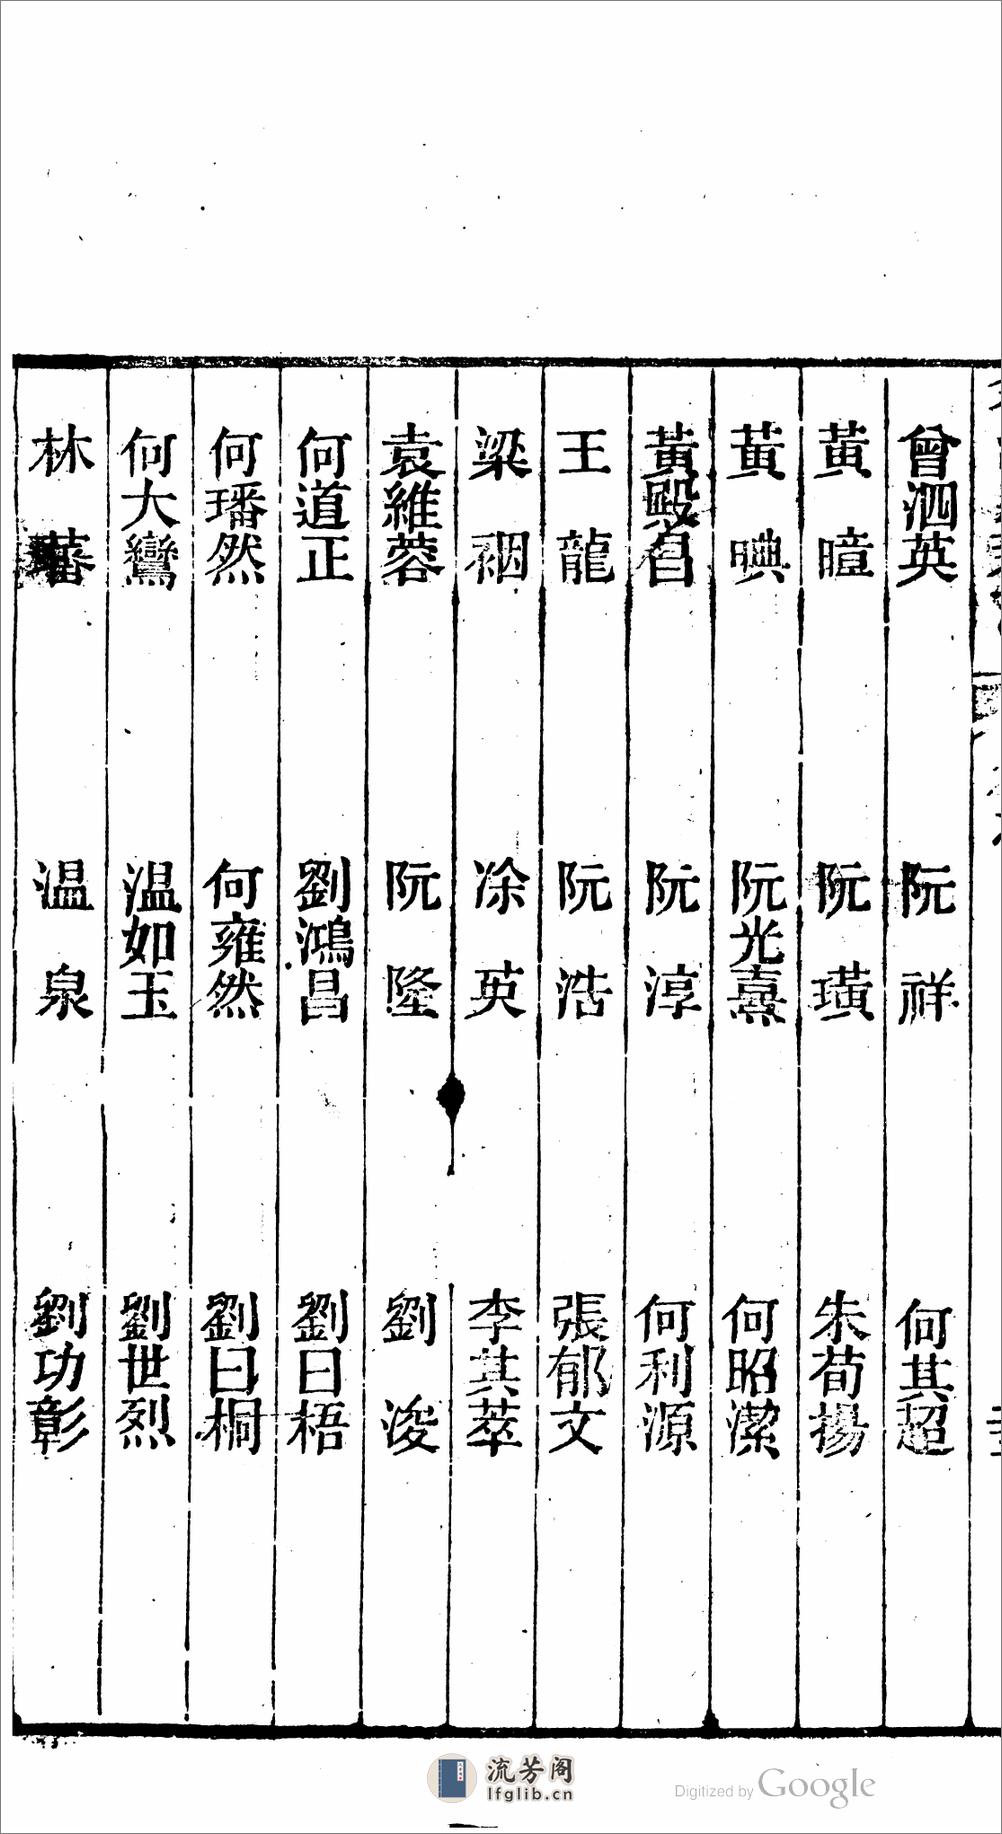 曾泗英 阮祥 何其超
黃曈 阮璜 朱荀揚
黃㬏 阮光熹 何昭潔
黃殿昌 阮淳 何利源
王龍 阮浩 張郁文
梁裀 凃英 李其萃
袁維蓉 阮隆 劉浚
何道正 劉鴻昌 劉曰梧
何璠然 何雍然 劉曰桐
何大鸞 温如玉 劉世烈
林蕃 温泉 劉功彰
流芳阁
lfglib.cn
Digitized by Google